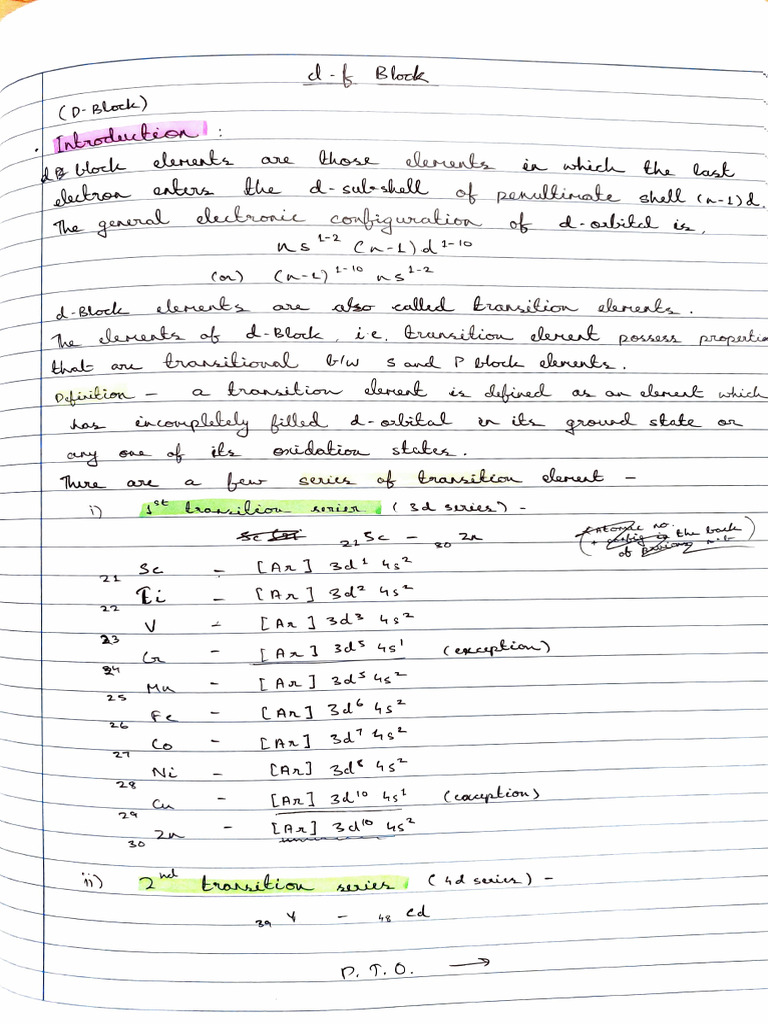 d-f Block
(D-Block)
. Introduction :
d block elements are those elements in which the last
electron enters the d-sub-shell of penultimate shell (n-1)d.
The general electronic configuration of d-orbital is,
ns¹⁻² (n-1)d¹⁻¹⁰
(or) (n-1)¹⁻¹⁰ ns¹⁻²
d-Block elements are also called transition elements.
The elements of d-Block, i.e. transition element possess propertie
that are transitional b/w s and P block elements.
Definition - a transition element is defined as an element which
has incompletely filled d-orbital in its ground state or
any one of its oxidation states.
There are a few series of transition element -
i) 1st transition series (3d series) -
₂₁Sc - ₃₀Zn
₂₁ Sc - [Ar] 3d¹ 4s²
₂₂ Ti - [Ar] 3d² 4s²
₂₃ V - [Ar] 3d³ 4s²
₂₄ Cr - [Ar] 3d⁵ 4s¹ (exception)
₂₅ Mn - [Ar] 3d⁵ 4s²
₂₆ Fe - [Ar] 3d⁶ 4s²
₂₇ Co - [Ar] 3d⁷ 4s²
₂₈ Ni - [Ar] 3d⁸ 4s²
₂₉ Cu - [Ar] 3d¹⁰ 4s¹ (exception)
₃₀ Zn - [Ar] 3d¹⁰ 4s²
ii) 2nd transition series (4d series) -
₃₉Y - ₄₈Cd
P.T.O. →